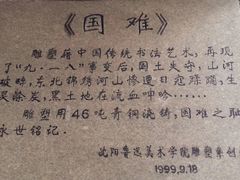 《国难》
雕塑藉中国传统书法艺术，再现
了“九·一八”事变后，国土失守，山河
破碎，东北锦绣河山惨遭日寇蹂躏，生
灵涂炭，黑土地在流血呻吟……
雕塑用46吨青铜浇铸，国难之耻
永世铭记。
沈阳鲁迅美术学院雕塑系创
1999.9.18